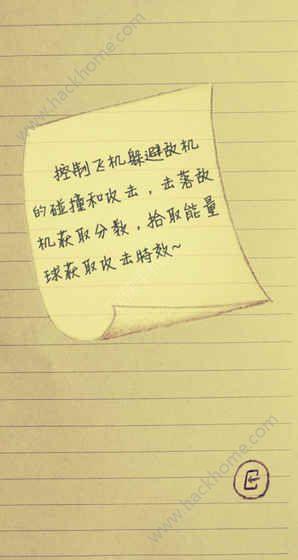 www.hackhome.com
控制飞机躲避敌机
的碰撞和攻击，击落敌
机获取分数，拾取能量
球获取攻击特效~
www.hackhome.com